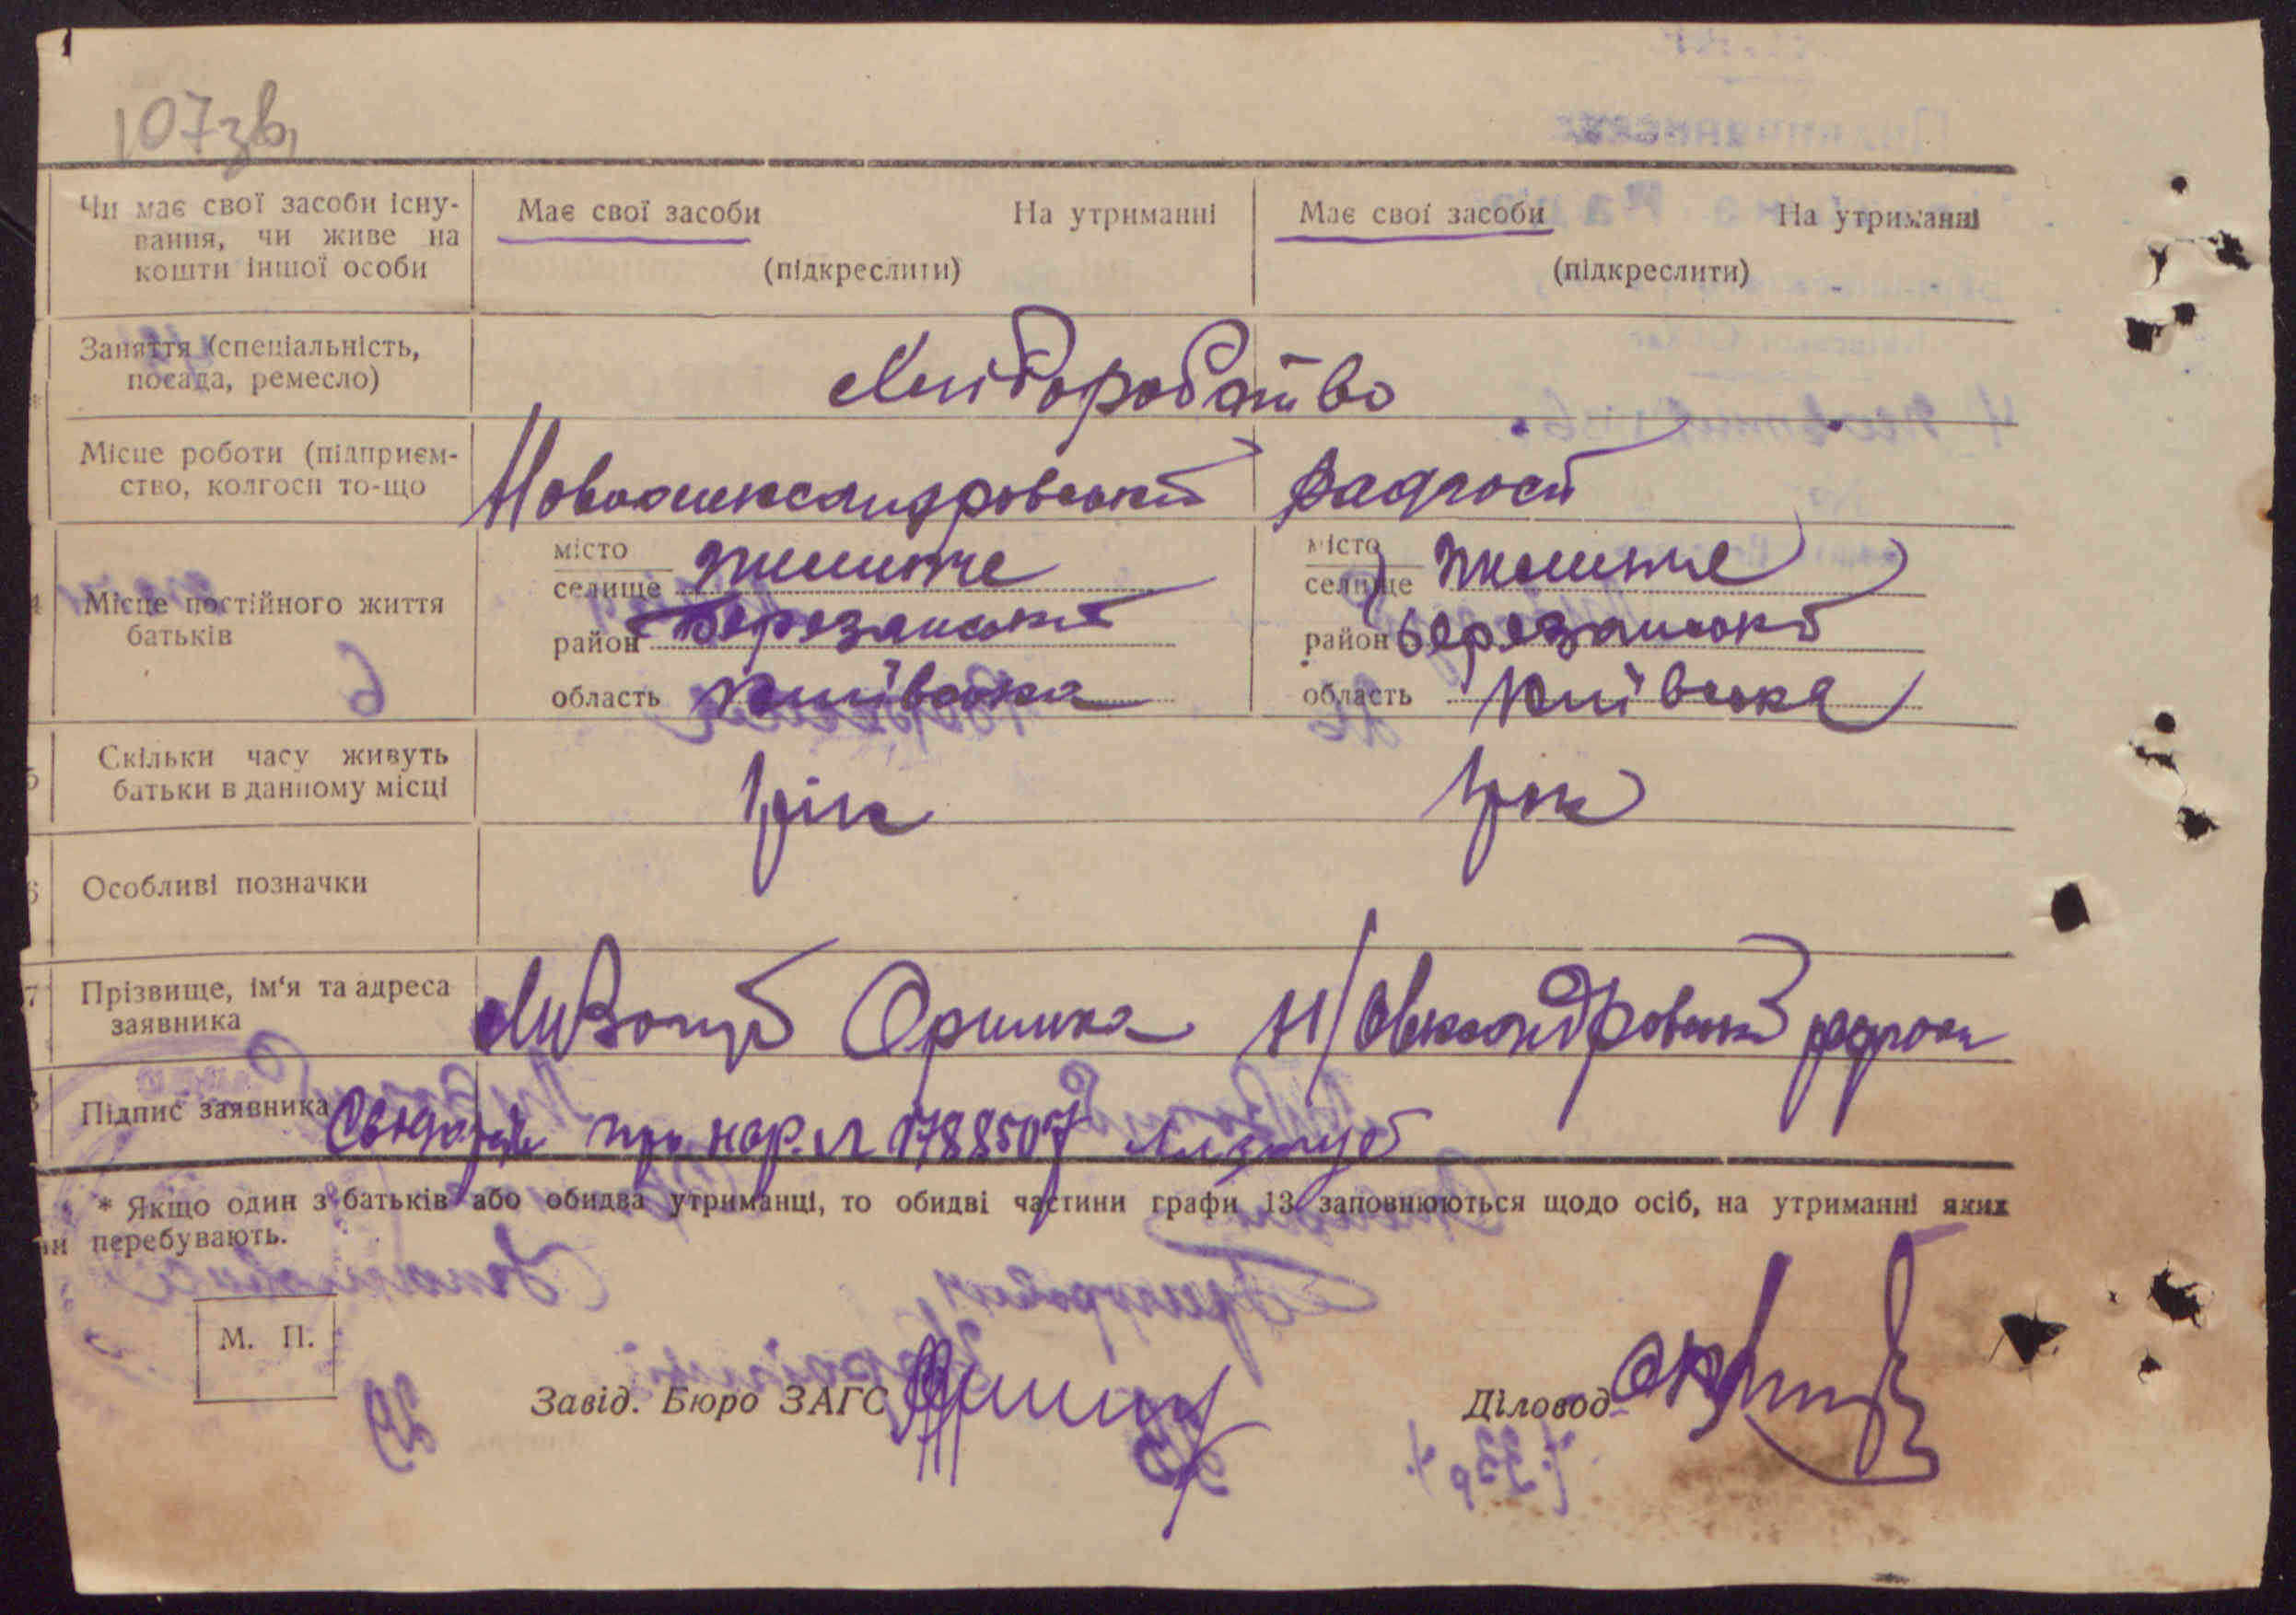 107зв,
Чи має свої засоби існу-
вання, чи живе на
кошти іншої особи
Має свої засоби На утриманні
(підкреслити)
Має свої засоби На утриманні
(підкреслити)
Заняття (спеціальність,
посада, ремесло)
Хліборобство
Місце роботи (підприєм-
ство, колгосп то-що
Новоолександровський радгосп
Місце постійного життя
батьків
місто
селище
район Березанський
область Київська
місто
селище
район Березанський
область Київська
Скільки часу живуть
батьки в данному місці
1 рік
1 рік
Особливі позначки
Прізвище, ім'я та адреса
заявника
Лизогуб Оришка Н/Олександровський радгосп
Підпис заявника
про нар. № 1788507 Лизогуб
* Якщо один з батьків або обидва утриманці, то обидві частини графи 13 заповнюються щодо осіб, на утриманні яких
перебувають.
М. П.
Завід. Бюро ЗАГС
Діловод